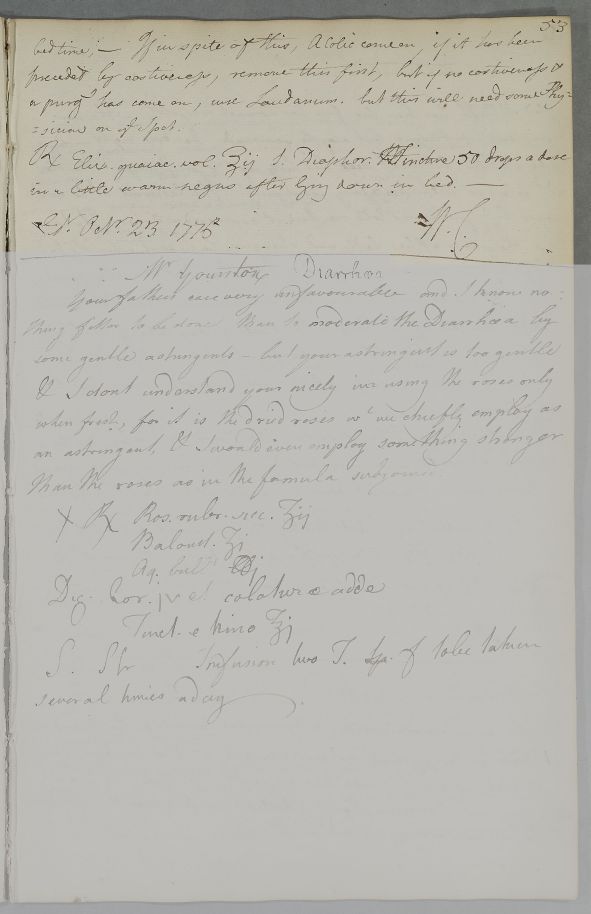 53
bedtime; — If in spite of this, a Colic come on, if it has been
preceded by costiveness, remove this first, but if no costiveness &
a purg.g has come on, use Laudanum. but this will need some Phy=
=sician on ye Spot.
℞ Elix. guaiac. vol. ʒij S. Diaphor. Tincture 50 drops a dose
in a little warm negus after lying down in bed. —
Octr. 23 1775 W. C.
Mr Yourston Diarrhœa
Your fathers case very unfavourable and I know no=
thing fitter to be done than to moderate the Diarrhœa by
some gentle astringents – but your astringent is too gentle
& I dont understand your nicety in using the roses only
when fresh, for it is the dried roses wt. we chiefly employ as
an astringent, & I would even employ something stronger
than the roses as in the formula subjoined.
X ℞ Ros. rubr. sicc. ʒij
Balaust. ʒj
Aq. bull. ℔j
Dig. hor. iv et colaturæ adde
Tinct. e kino ʒj
S. Infusion two T. sp. f. to be taken
several times a day